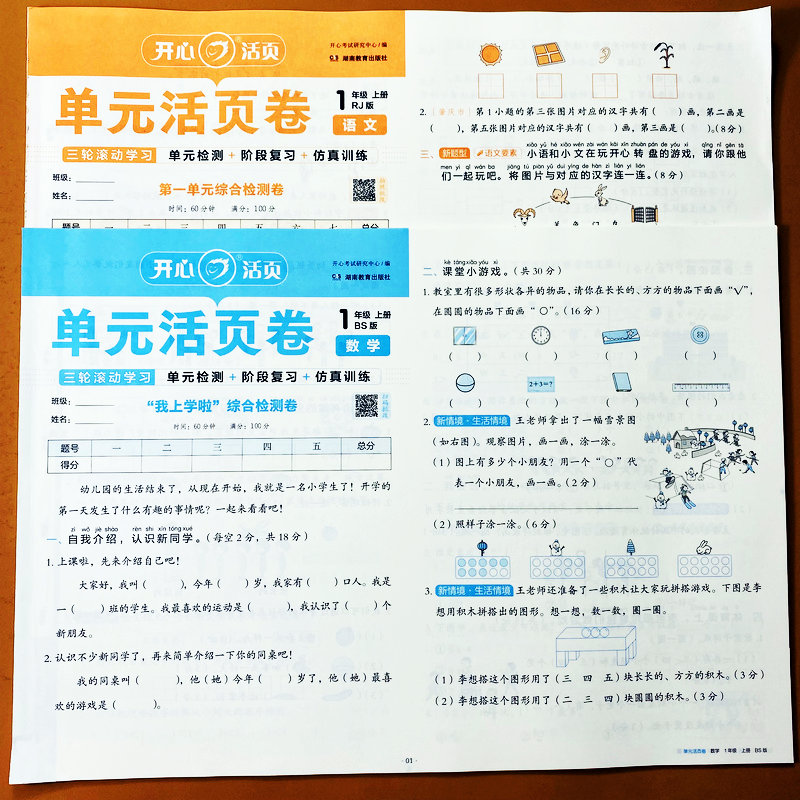 开心 活页®
开心考试研究中心/编
湖南教育出版社
单元活页卷
1年级 上册
RJ版
语文
三轮滚动学习 单元检测+阶段复习+仿真训练
班级:
姓名:
第一单元综合检测卷
时间:60分钟 满分:100分
题号 一 二 三 四 五 六 七 总分
2.[肇庆市]第1小题的第三张图片对应的汉字共有( )画,第二画是
( ),第五张图片对应的汉字共有( )画,第三画是( )。(8分)
三、新题型 语文要素 小语和小文在玩开心转盘的游戏,请你跟他
们一起玩吧。将图片与对应的汉字连一连。(8分)
开心 活页®
开心考试研究中心/编
湖南教育出版社
单元活页卷
1年级 上册
BS版
数学
三轮滚动学习 单元检测+阶段复习+仿真训练
班级:
姓名:
“我上学啦”综合检测卷
扫码批改
时间:60分钟 满分:100分
题号 一 二 三 四 五 总分
得分
幼儿园的生活结束了,从现在开始,我就是一名小学生了!开学的
第一天发生了什么有趣的事情呢?一起来看看吧!
zì wǒ jiè shào rèn shi xīn tóng xué
一、自我介绍,认识新同学。(每空2分,共18分)
1.上课啦,先来介绍自己吧!
大家好,我叫( ),今年( )岁,我家有( )口人。我是
一( )班的学生。我最喜欢的运动是( ),我认识了( )个
新朋友。
2.认识不少新同学了,再来简单介绍一下你的同桌吧!
我的同桌叫( ),他(她)今年( )岁了,他(她)最喜
欢的游戏是( )。
kè táng xiǎo yóu xì
二、课堂小游戏。(共30分)
1.教室里有很多形状各异的物品,请你在长长的、方方的物品下面画“√”,
在圆圆的物品下面画“○”。(16分)
( ) ( ) ( ) ( )
2+3=?
( ) ( ) ( ) ( )
2.新情境·生活情境 王老师拿出了一幅雪景图
(如右图)。观察图片,画一画,涂一涂。
(1)图上有多少个小朋友?用一个“○”代
表一个小朋友,画一画。(2分)
(2)照样子涂一涂。(6分)
3.新情境·生活情境 王老师还准备了一些积木让大家玩拼搭游戏。下图是李
想用积木拼搭出的图形。想一想,数一数,圈一圈。
(1)李想搭这个图形用了(三 四 五)块长长的、方方的积木。(3分)
(2)李想搭这个图形用了(二 三 四)块圆圆的积木。(3分)
·01·
单元活页卷 数学 1年级·上册 BS版